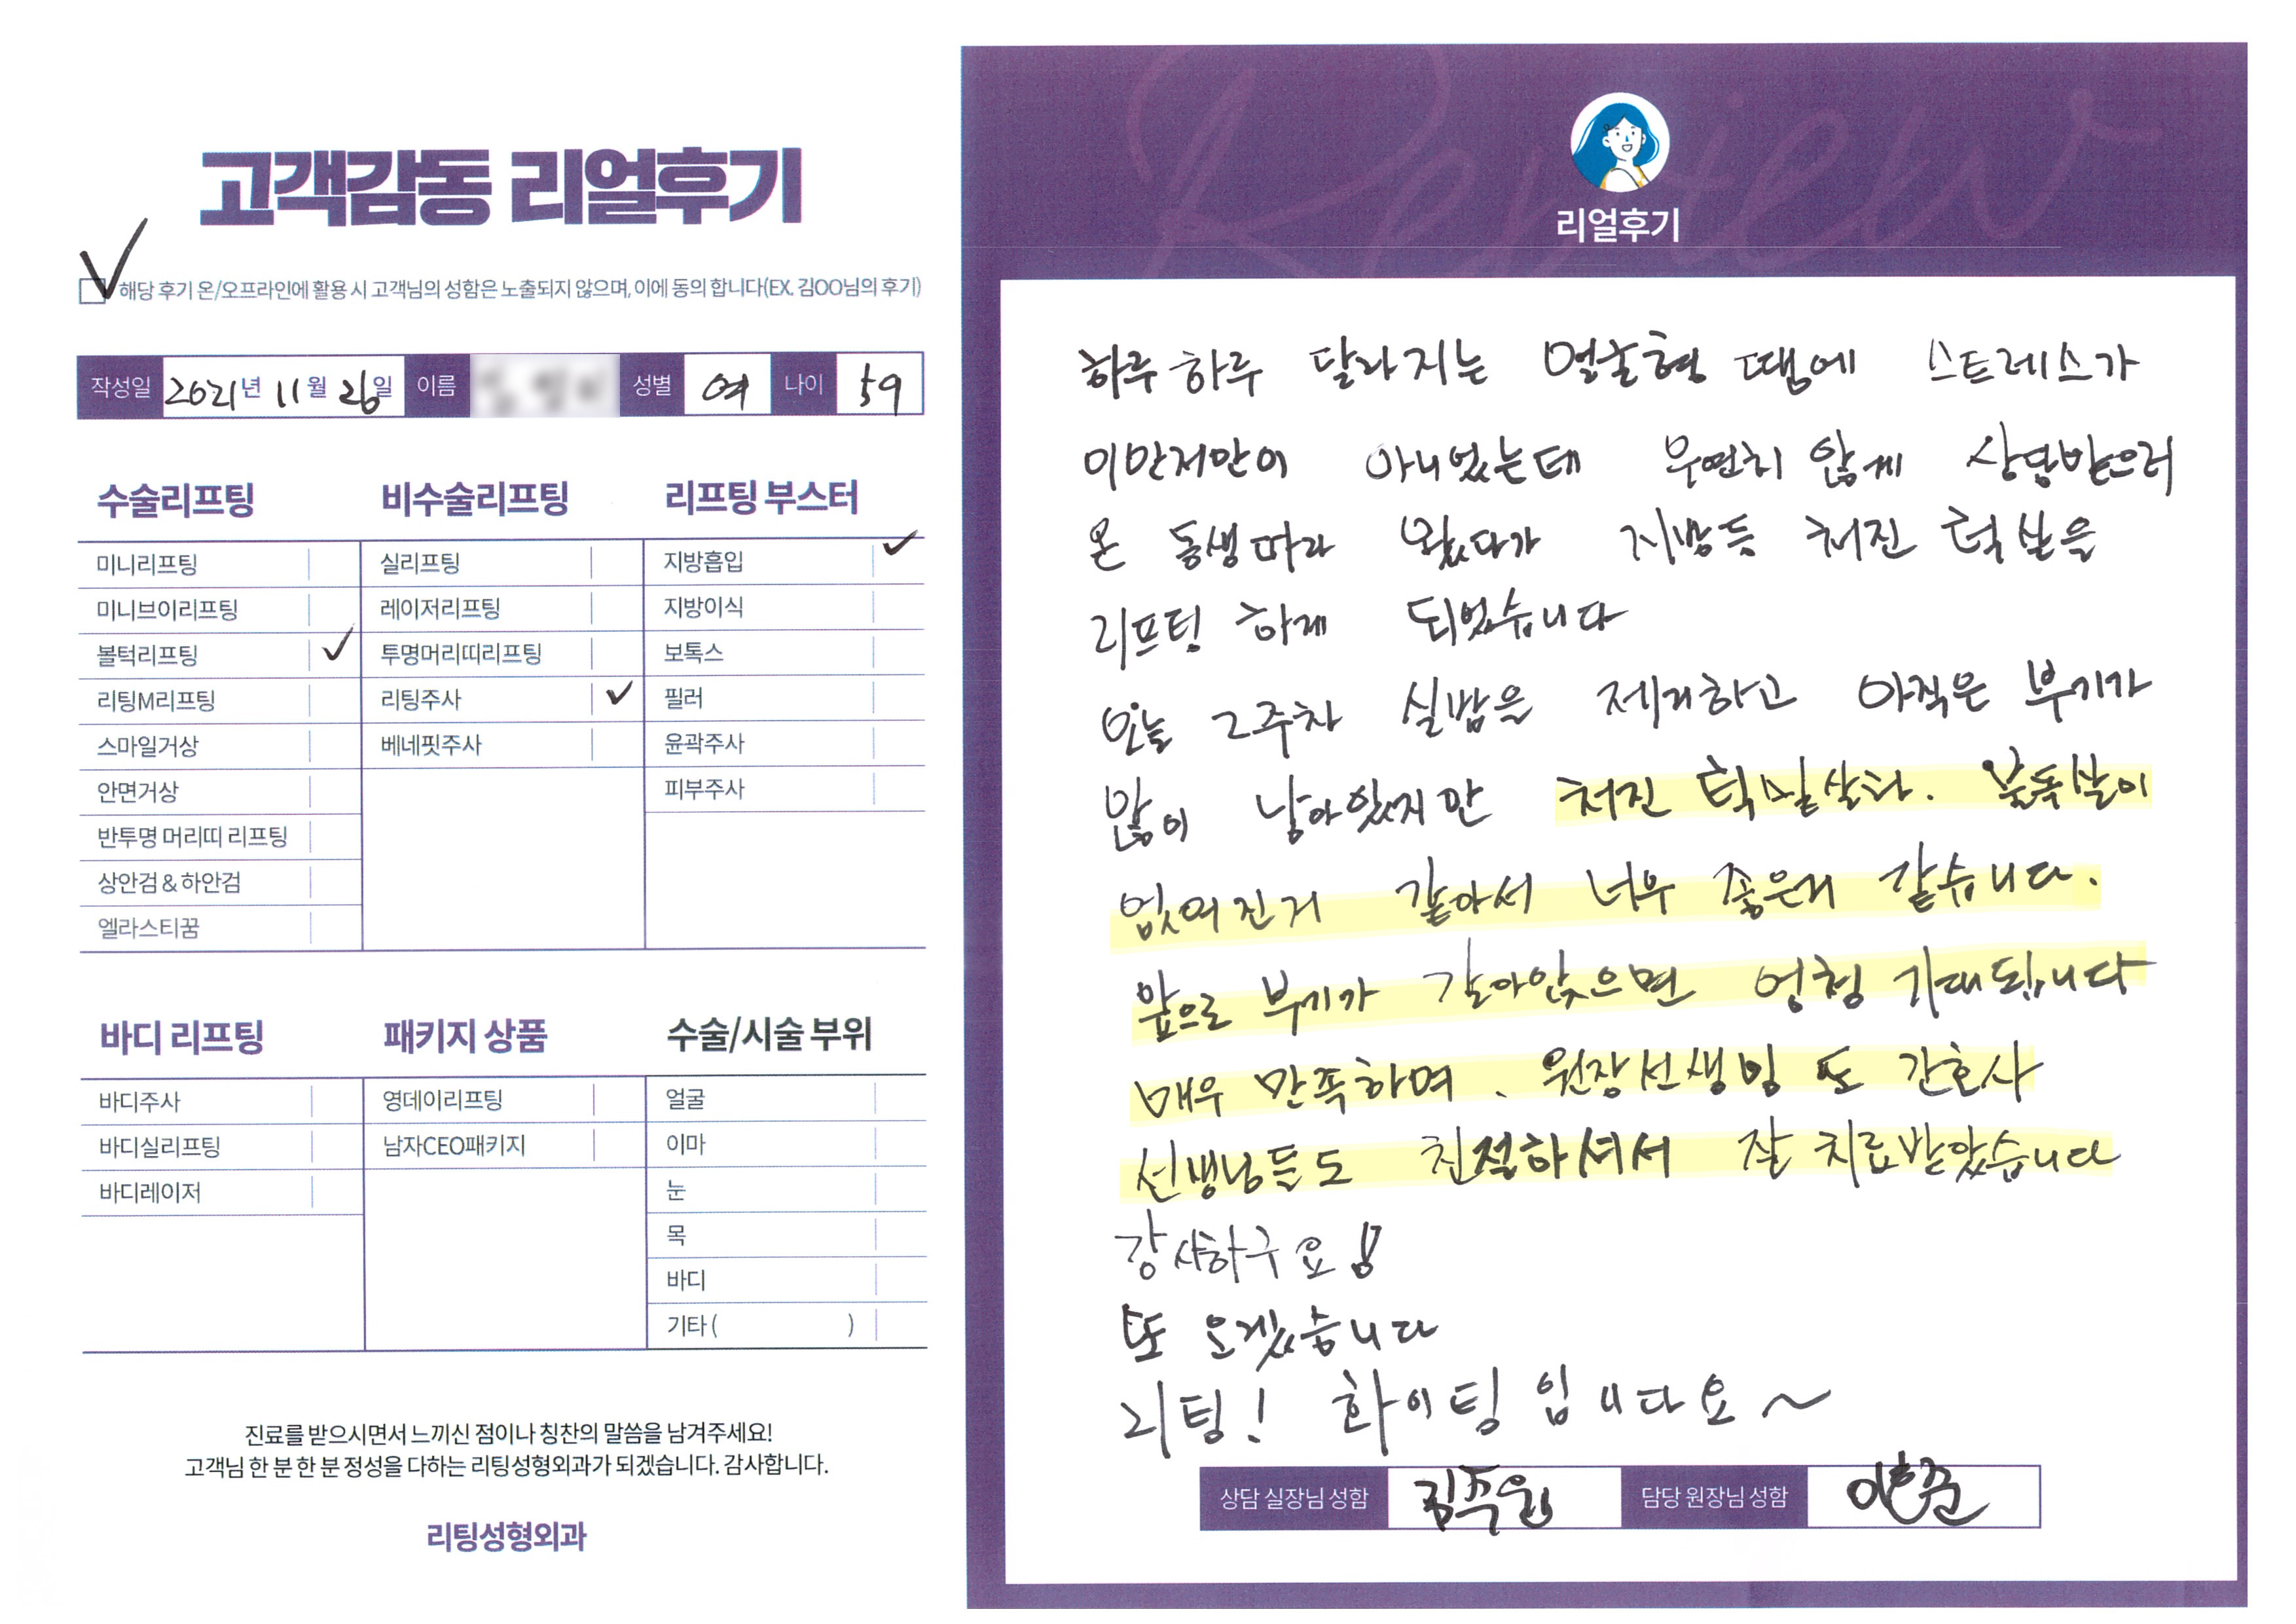 고객감동 리얼후기
해당 후기 온/오프라인에 활용 시 고객님의 성함은 노출되지 않으며, 이에 동의 합니다(EX. 김OO님의 후기)
작성일 2021년 11월 26일 이름 성별 여 나이 59
수술리프팅
미니리프팅
미니브이리프팅
볼턱리프팅 ✓
리팅M리프팅
스마일거상
안면거상
반투명 머리띠 리프팅
상안검 & 하안검
엘라스티꿈
비수술리프팅
실리프팅
레이저리프팅
투명머리띠리프팅
리팅주사 ✓
베네핏주사
리프팅 부스터
지방흡입 ✓
지방이식
보톡스
필러
윤곽주사
피부주사
바디 리프팅
바디주사
바디실리프팅
바디레이저
패키지 상품
영데이리프팅
남자CEO패키지
수술/시술 부위
얼굴
이마
눈
목
바디
기타 ( )
진료를 받으시면서 느끼신 점이나 칭찬의 말씀을 남겨주세요!
고객님 한 분 한 분 정성을 다하는 리팅성형외과가 되겠습니다. 감사합니다.
리팅성형외과
Review
리얼후기
하루하루 달라지는 얼굴형 땜에 스트레스가
이만저만이 아니었는데 우연치 않게 상담받으러
온 동생따라 왔다가 지방등 처진 턱살을
리프팅 하게 되었습니다
오늘 2주차 실밥을 제거하고 아직은 부기가
많이 남아있지만 처진 턱밑살과. 불독살이
없어진거 같아서 너무 좋은거 같습니다.
앞으로 부기가 갈아앉으면 엄청 기대됩니다
매우 만족하며. 원장선생님 도 간호사
선생님들도 친절하셔서 잘 치료받았습니다
감사하구요!
또 오겠습니다
리팅! 화이팅 입니다요~
상담 실장님 성함 김주원 담당 원장님 성함